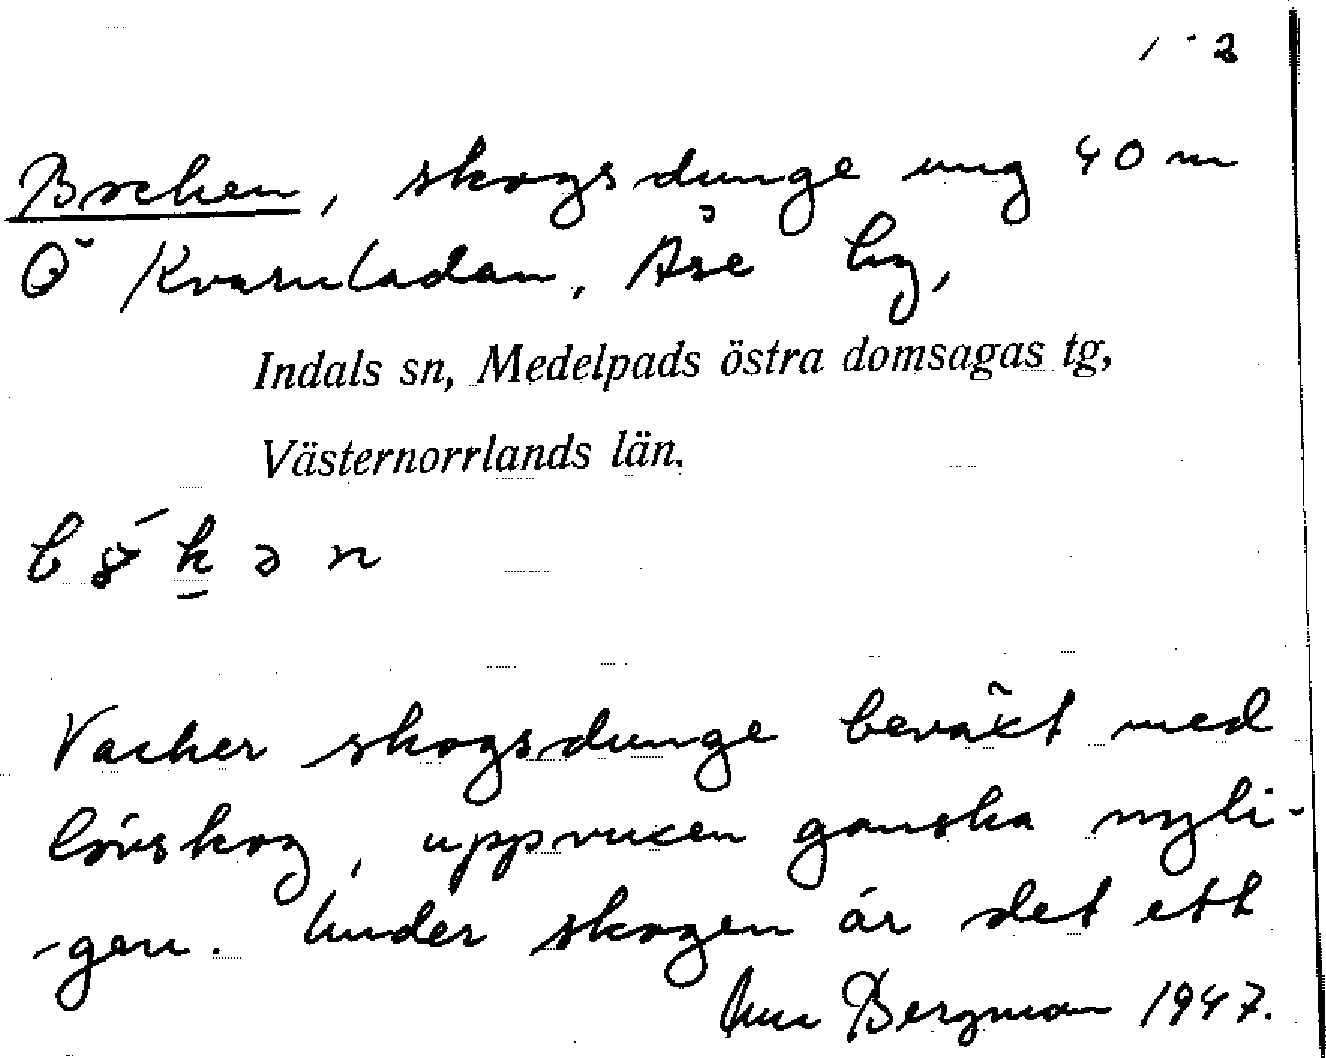 1-2
Bocken, skogsdunge ung 40 m
Ö Kvarnladan, Åse by,
Indals sn, Medelpads östra domsagas tg,
Västernorrlands län.
Vacker skogsdunge beväxt med
lövskog, uppvuxen ganska nyli-
-gen. Under skogen är det ett
Bergman 1947.